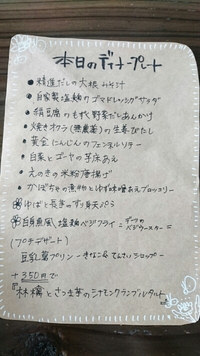 本日のディナープレート
● 精進だしの大根みそ汁
● 自家製塩麹ゴマドレッシングサラダ
● 絹豆腐のもずく野菜だしあんかけ
● 焼きオクラ(無農薬)の生姜びたし
● 黄金にんじんのフェンネルソテー
● 白菜とゴーヤの芋床あえ
● えのきの米粉唐揚げ
● かぼちゃの煮物とゆず味噌あえブロッコリー
ゆばと長芋のずり身天ぷら
白身魚風塩麹ベジフライ=
ベジタースター=
(プチデザート)
豆乳葛プリン-きなこ&てんさいシロップ-
+350円で
"林檎とさつま芋のシナモンクランブルタルト"